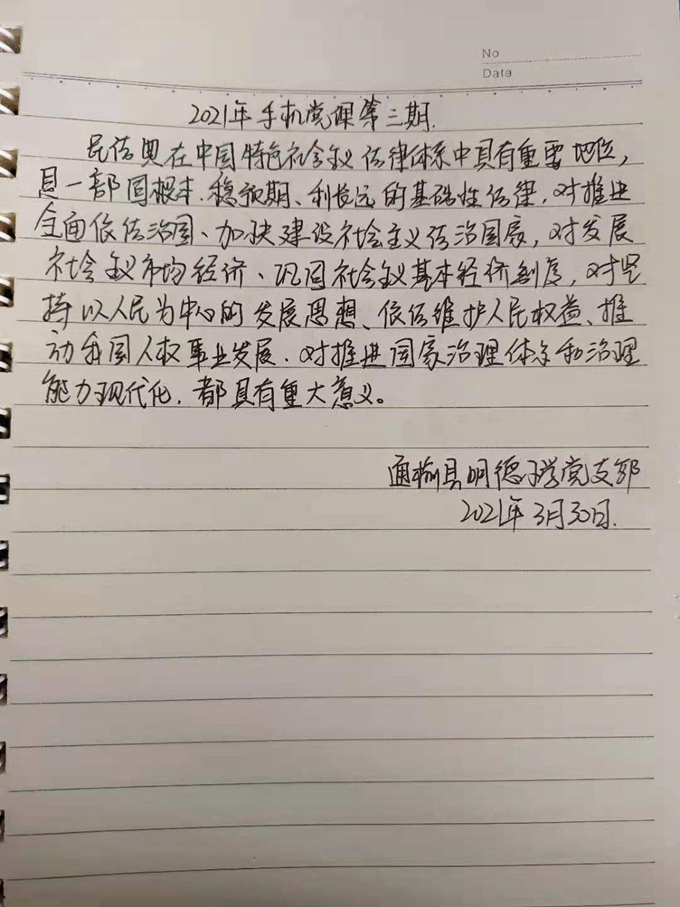 No
Data
2021年手机党课第三期.
民法典在中国特色社会主义法律体系中具有重要地位,
是一部固根本、稳预期、利长远的基础性法律,对推进
全面依法治国、加快建设社会主义法治国家,对发展
社会主义市场经济、巩固社会主义基本经济制度,对坚
持以人民为中心的发展思想、依法维护人民权益、推
动我国人权事业发展,对推进国家治理体系和治理
能力现代化,都具有重大意义。
通榆县明德学党支部
2021年3月30日.